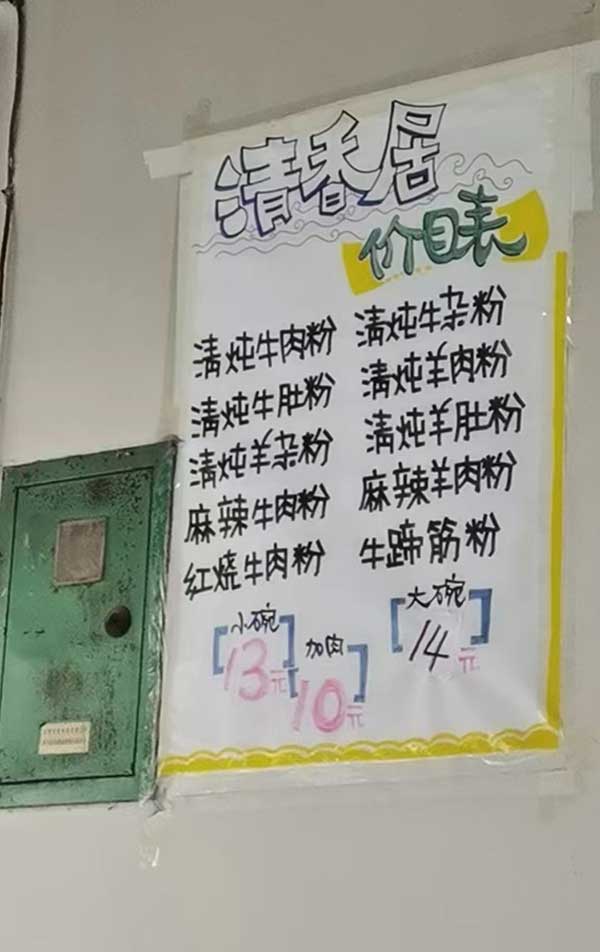 清香居
价目表
清炖牛肉粉 清炖牛杂粉
清炖牛肚粉 清炖羊肉粉
清炖羊杂粉 清炖羊肚粉
麻辣牛肉粉 麻辣羊肉粉
红烧牛肉粉 牛蹄筋粉
小碗 加肉 大碗
13元 10元 14元